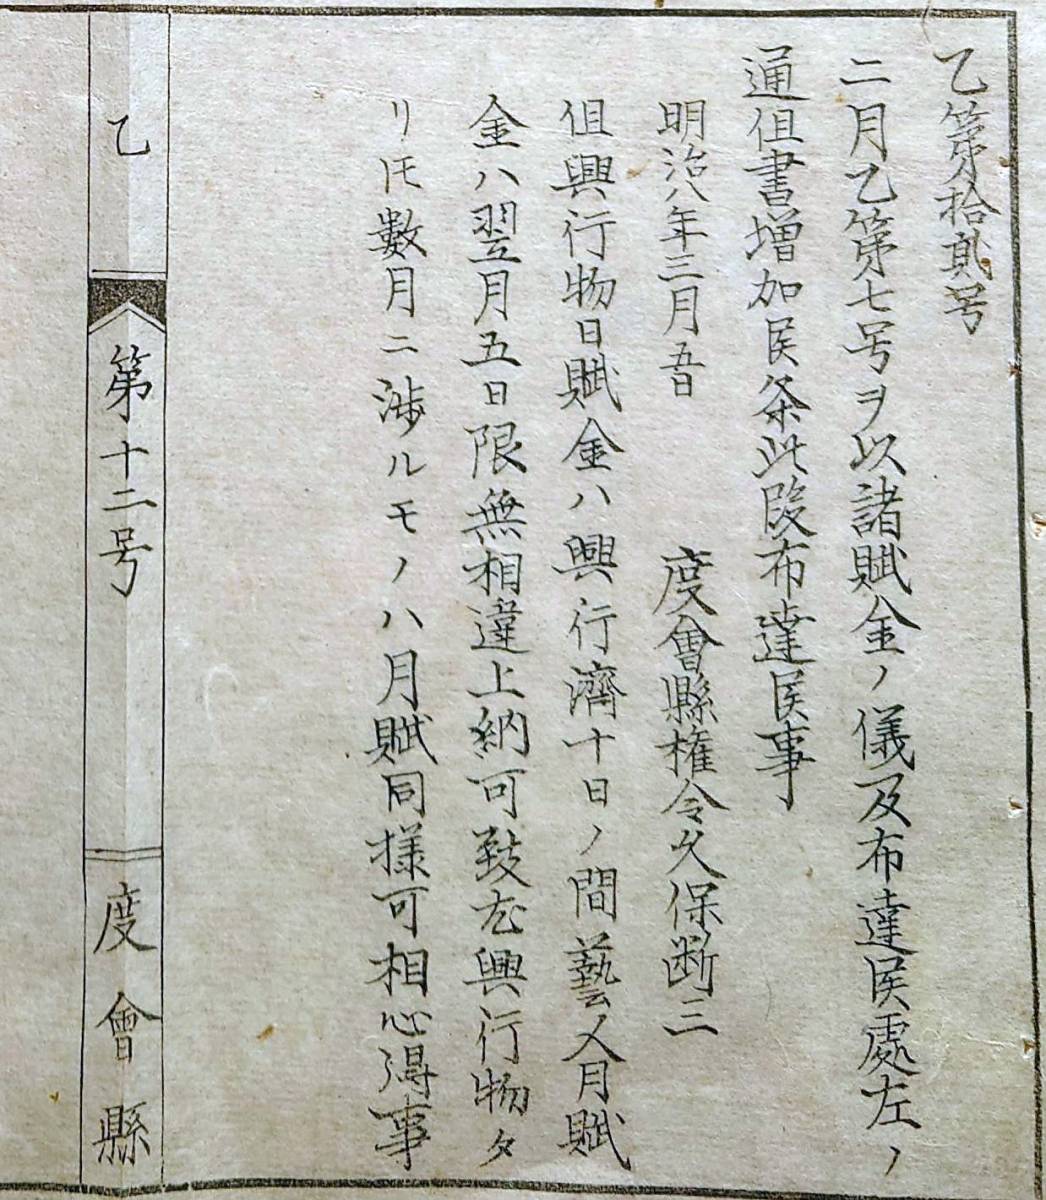 乙第拾貳号
二月乙第七号ヲ以諸賦金ノ儀及布達候處左ノ
通但書増加候条此段布達候事
明治八年三月五日
度會縣権令久保断三
但興行物日賦金ハ興行濟十日ノ間藝人月賦
金ハ翌月五日限無相違上納可致尤興行物タ
リ𪜈數月ニ渉ルモノハ月賦同様可相心得事
乙
第十二号
度會縣